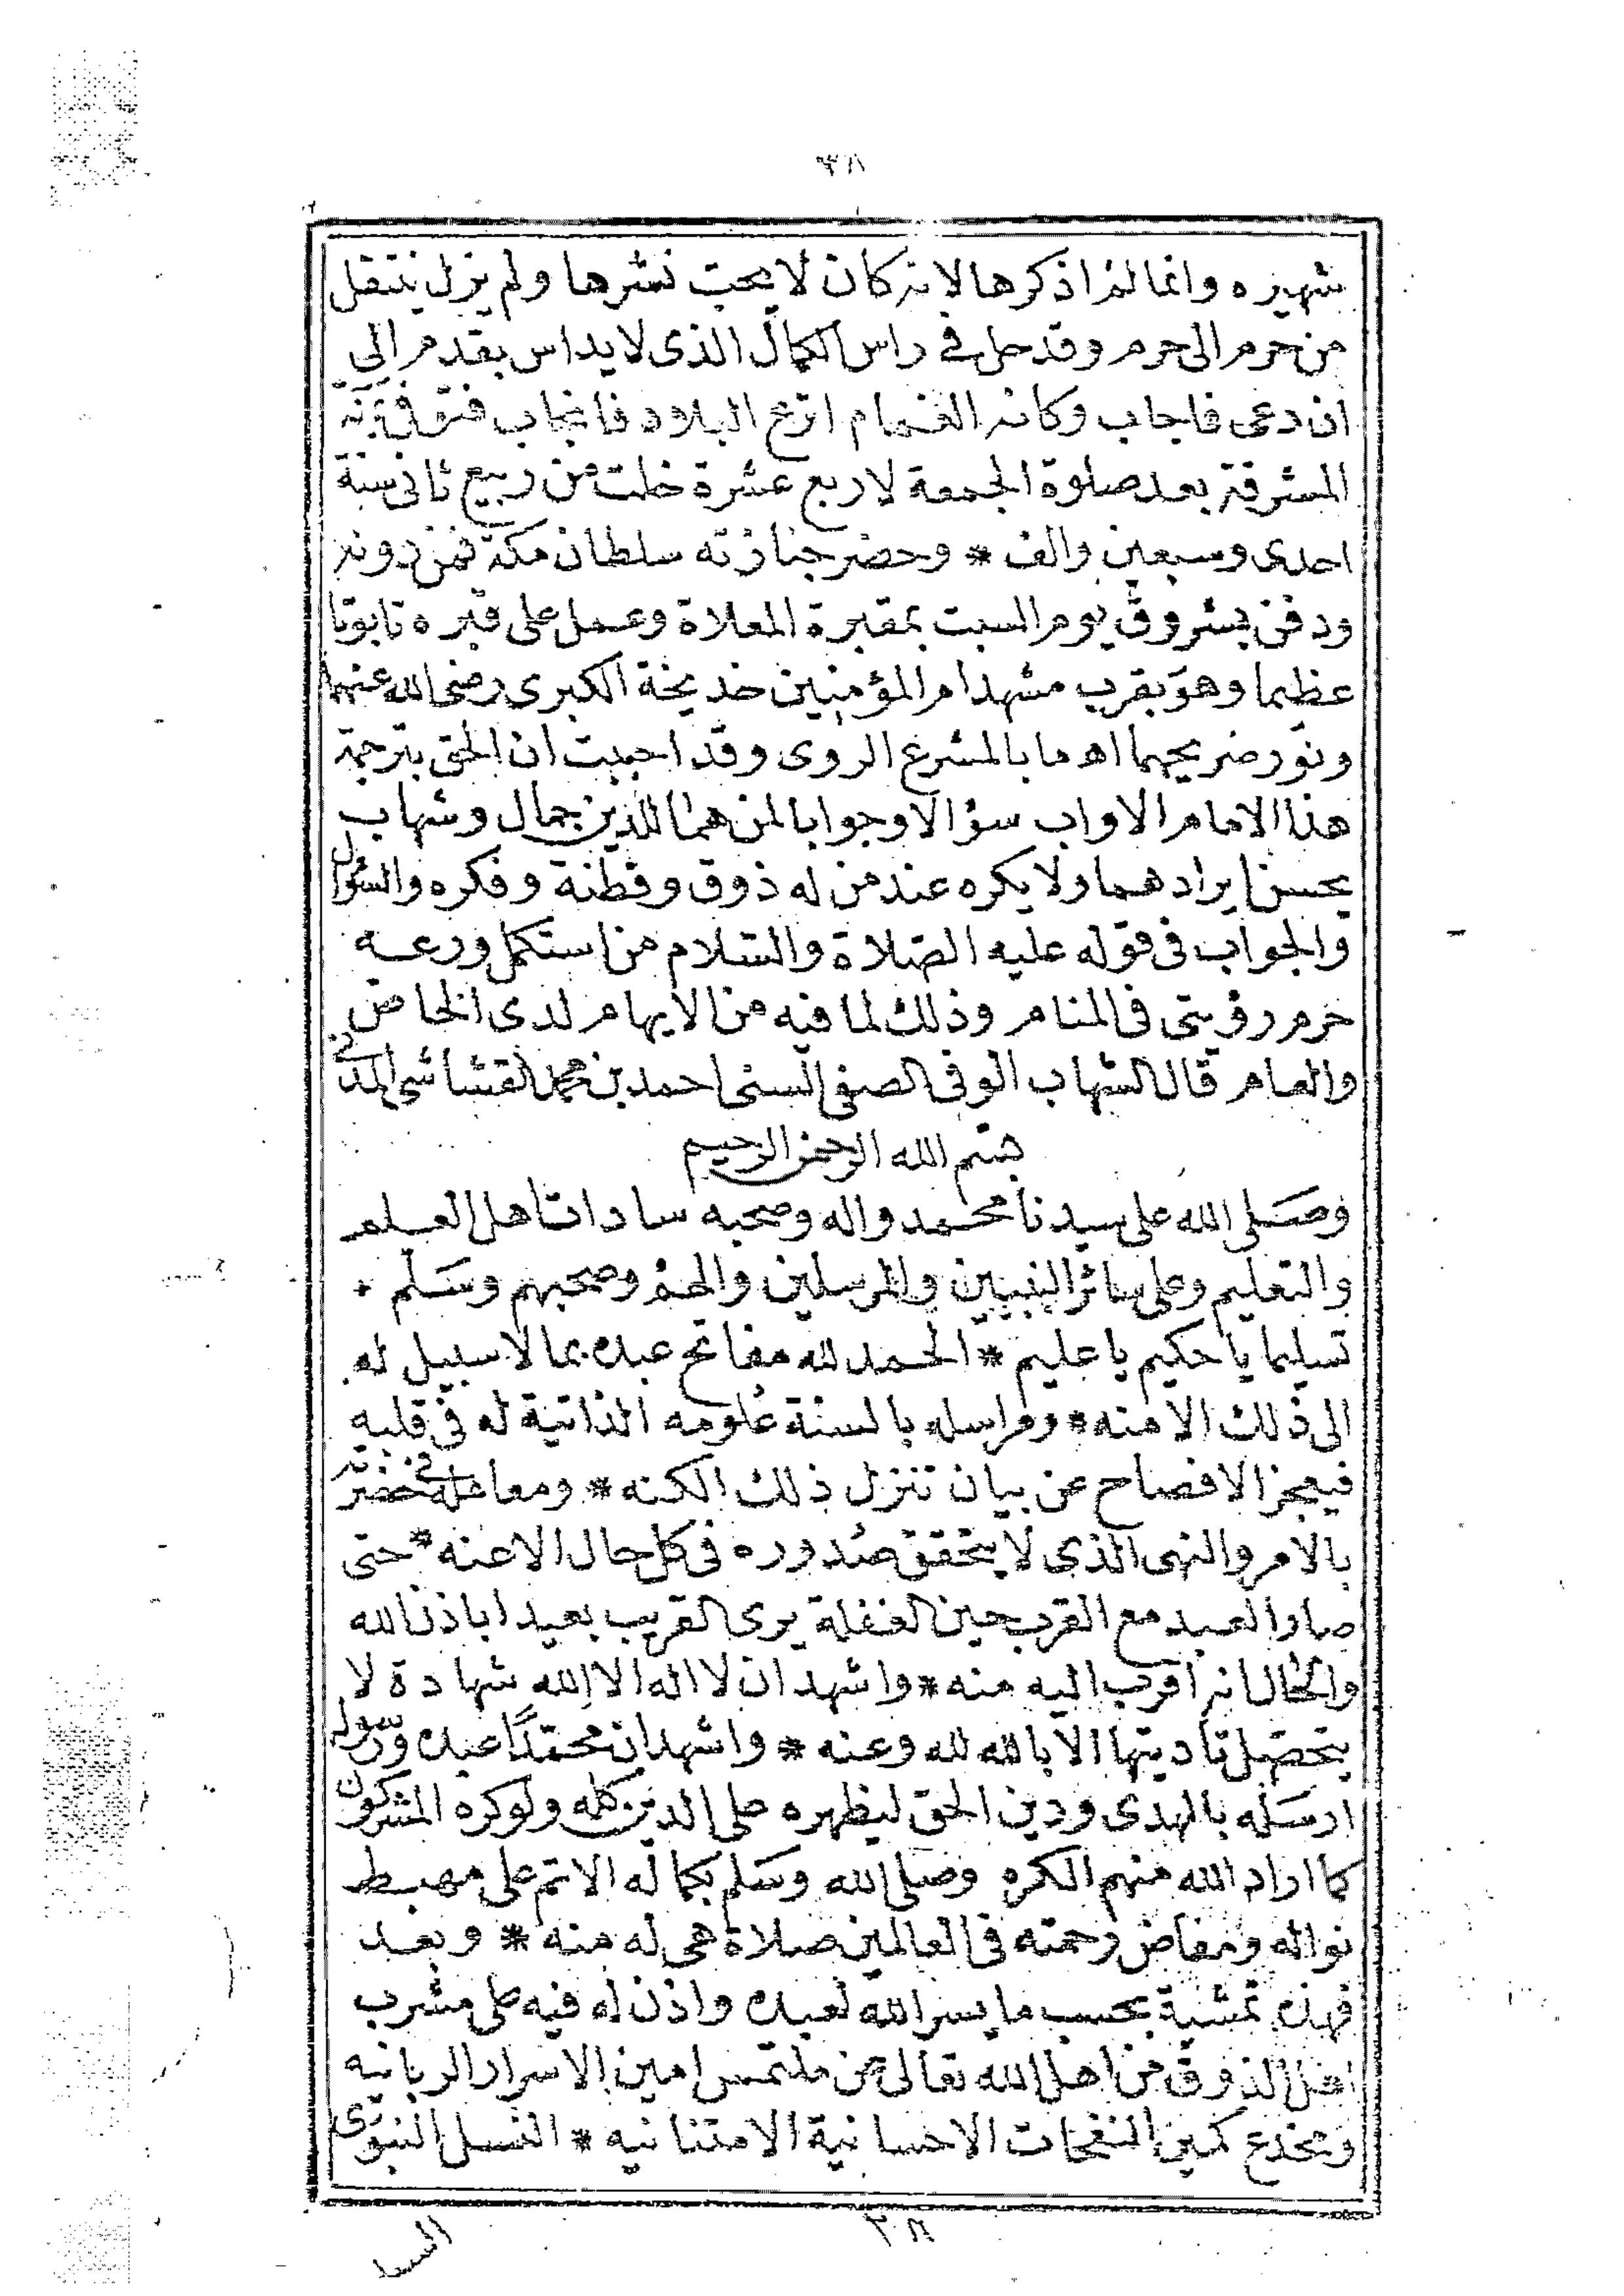 ٣٨
شهيره وانما لم اذكرها لانه كان لا يحب نشرها ولم يزل ينتقل
من حرم الى حرم وقد حل في راس الكمال الذى لا يداس بقدم الى
ان دعى فاجاب وكانه الغمام اترع البلاد فانجاب فتوفى بمكة
المشرفة بعد صلوة الجمعة لاربع عشرة خلت من ربيع ثانى سنة
احدى وسبعين والف * وحضر جنازته سلطان مكة فمن دونه
ودفن بشروق يوم السبت بمقبرة المعلاة وعمل على قبره تابوتا
عظيما وهو بقرب مشهد ام المؤمنين خديجة الكبرى رضى الله عنهما
ونور ضريحهما اه ما بالمشرع الروى وقد احببت ان الحق بترجمة
هذا الامام الاواب سؤالا وجوابا لمن هما للدين جمال وشهاب
يحسن ايرادهما ولا يكره عند من له ذوق وفطنة وفكره والسؤال
والجواب فى قوله عليه الصلاة والسلام من استكمل ورعه
حرم رؤيتى فى المنام وذلك لما فيه من الايهام لدى الخاص
والعام قال الشهاب الوفى الصفى السنى احمد بن محمد القشاشى المدنى
بسم الله الرحمن الرحيم
وصلى الله على سيدنا محمد واله وصحبه سادات اهل العلم
والتعليم وعلى سائر النبيين والمرسلين والهم وصحبهم وسلم *
تسليما يا حكيم يا عليم * الحمد لله مفاتح عبده بما لا سبيل له
الى ذلك الا منه * ومراسله بالسنة علومه الذاتية له فى قلبه
فيعجز الافصاح عن بيان تنزل ذلك الكنه * ومعامله فى حضرته
بالامر والنهى الذى لا يتحقق صدوره فى كل حال الا عنه * حتى
صار العبد مع القرب حين الغفلة يرى القريب بعيدا باذن الله
والحال انه اقرب اليه منه * واشهد ان لا اله الا الله شهادة لا
يتحصل تاديتها الا بالله لله وعنه * واشهد ان محمدًا عبده ورسوله
ارسله بالهدى ودين الحق ليظهره على الدين كله ولو كره المشركون
كما اراد الله منهم الكره وصلى الله وسلم بكماله الاتم على مهبط
نواله ومفاض رحمته فى العالمين صلاة هى له منه * وبعد
فهذه تمشية بحسب ما يسر الله لعبده واذن له فيه على مشرب
اهل الذوق من اهل الله تعالى عن ملتمس امين الاسرار الربانيه
ومخدع كمين النفحات الاحسانية الامتنانيه * النسل النبوى
٣٨